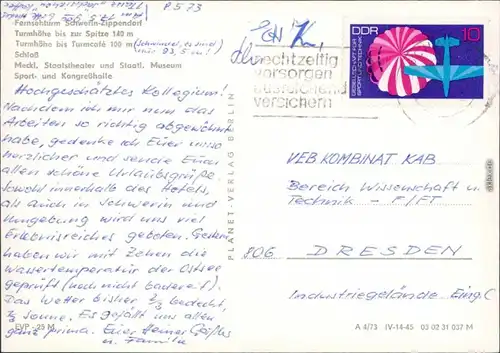 P 573
Fernsehturm Schwerin-Zippendorf
Turmhöhe bis zur Spitze 140 m
Turmhöhe bis Turmcafé 100 m
Schloß
Meckl. Staatstheater und Staatl. Museum
Sport- und Kongreßhalle
Hochgeschätztes Kollegium!
Nachdem ich mir nun das
Arbeiten so richtig abgewöhnt
habe, gedenke ich Eurer umso
herzlicher und sende Euch
allen schöne Urlaubsgrüße.
Sowohl innerhalb des Hotels,
als auch in Schwerin und
Umgebung wird uns viel
Erlebnisreiches geboten. Gestern
haben wir mit Zehen die
Wassertemperatur der Ostsee
geprüft (noch nicht badereif).
Das Wetter bisher 2/3 bedeckt,
1/3 Sonne. Es gefällt uns allen
ganz prima. Euer Heiner
u. Familie
EVP -,25 M
PLANET-VERLAG BERLIN
rechtzeitig
vorsorgen
ausreichend
versichern
DDR
10
VEB KOMBINAT KAB
Bereich Wissenschaft u.
Technik - F/FT
806. DRESDEN
Industriegelände. Eing. C
A 4/73 IV-14-45 03 02 31 037 M